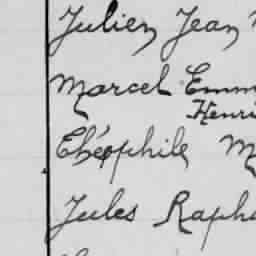 Julien Jean
Marcel Emm
Henri
Théophile M
Jules Raph